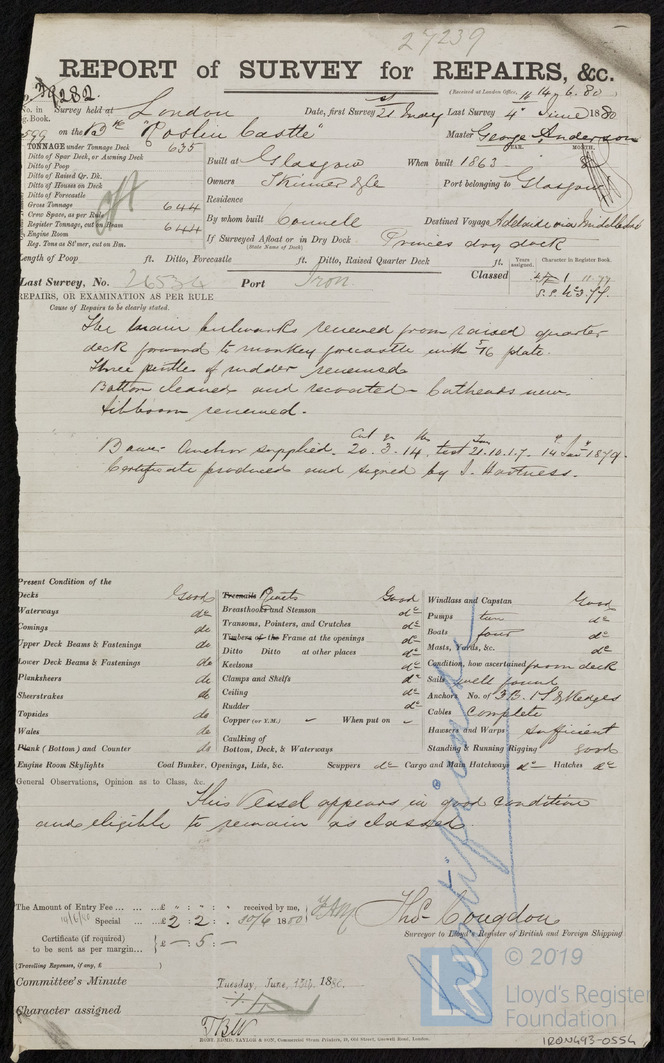 27239
REPORT of SURVEY for REPAIRS, &c.
(Received at London Office, 14.6.80)
No. in Survey held at London Date, first Survey 21st May Last Survey 4th June 1880
Book.
599 on the Bk "Roslin Castle" Master George Anderson
TONNAGE under Tonnage Deck 635
Ditto of Spar Deck, or Awning Deck
Ditto of Poop
Ditto of Raised Qr. Dk.
Ditto of Houses on Deck
Ditto of Forecastle
Gross Tonnage 644
Crew Space, as per Rule
Register Tonnage, cut on Beam 644
Engine Room
Reg. Tons as St'mer, cut on Bm.
YEAR. MONTH.
Built at Glasgow When built 1863
Owners Skinner & Co Port belonging to Glasgow
Residence
By whom built Connell Destined Voyage Adelaide via Middlesbro
If Surveyed Afloat or in Dry Dock Princes dry dock
(State Name of Dock)
Length of Poop ft. Ditto, Forecastle ft. Ditto, Raised Quarter Deck ft.
Years assigned. Character in Register Book.
Last Survey, No. 26534 Port Iron Classed 11.77
REPAIRS, OR EXAMINATION AS PER RULE
Cause of Repairs to be clearly stated.
The main bulwarks renewed from raised quarter
deck forward to monkey forecastle with 5/16 plate.
Three pintles of rudder renewed
Bottom cleaned and recoated - Catheads new.
Jibboom renewed.
Cwt qr lbs Tons
Bower Anchor supplied. 20.3.14, test 21.10.1.7. 1879.
Certificate produced and signed by J. Hartness.
Present Condition of the
Decks Good
Waterways do
Comings do
Upper Deck Beams & Fastenings do
Lower Deck Beams & Fastenings do
Planksheers do
Sheerstrakes do
Topsides do
Wales do
Plank (Bottom) and Counter do
Engine Room Skylights
Treenails Rivets Good
Breasthooks and Stemson do
Transoms, Pointers, and Crutches do
Timbers of the Frame at the openings do
Ditto Ditto at other places do
Keelsons do
Clamps and Shelfs do
Ceiling do
Rudder do
Copper (or Y.M.) - When put on -
Caulking of
Bottom, Deck, & Waterways
Coal Bunker, Openings, Lids, &c. Scuppers do Cargo and Main Hatchways do Hatches do
Windlass and Capstan Good
Pumps two do
Boats four do
Masts, Yards, &c. do
Condition, how ascertained from deck
Sails well found
Anchors No. of 3B. 1S. & Kedges
Cables Complete
Hawsers and Warps Sufficient
Standing & Running Rigging good
General Observations, Opinion as to Class, &c.
This Vessel appears in good condition
and eligible to remain as classed
The Amount of Entry Fee ... £ " : " : " received by me,
Special ... £ 2 : 2 : - 30/6 1880
Certificate (if required) to be sent as per margin... £ - : 5 : -
Thos Congdon
Surveyor to Lloyd's Register of British and Foreign Shipping
(Travelling Expenses, if any, £ )
Committee's Minute Tuesday, June, 15th, 1880.
Character assigned
TBW
ROBT. EDMD. TAYLOR & SON, Commercial Steam Printers, 19, Old Street, Goswell Road, London.
Certificate
LR
© 2019
Lloyd's Register
Foundation
IRON493-0554